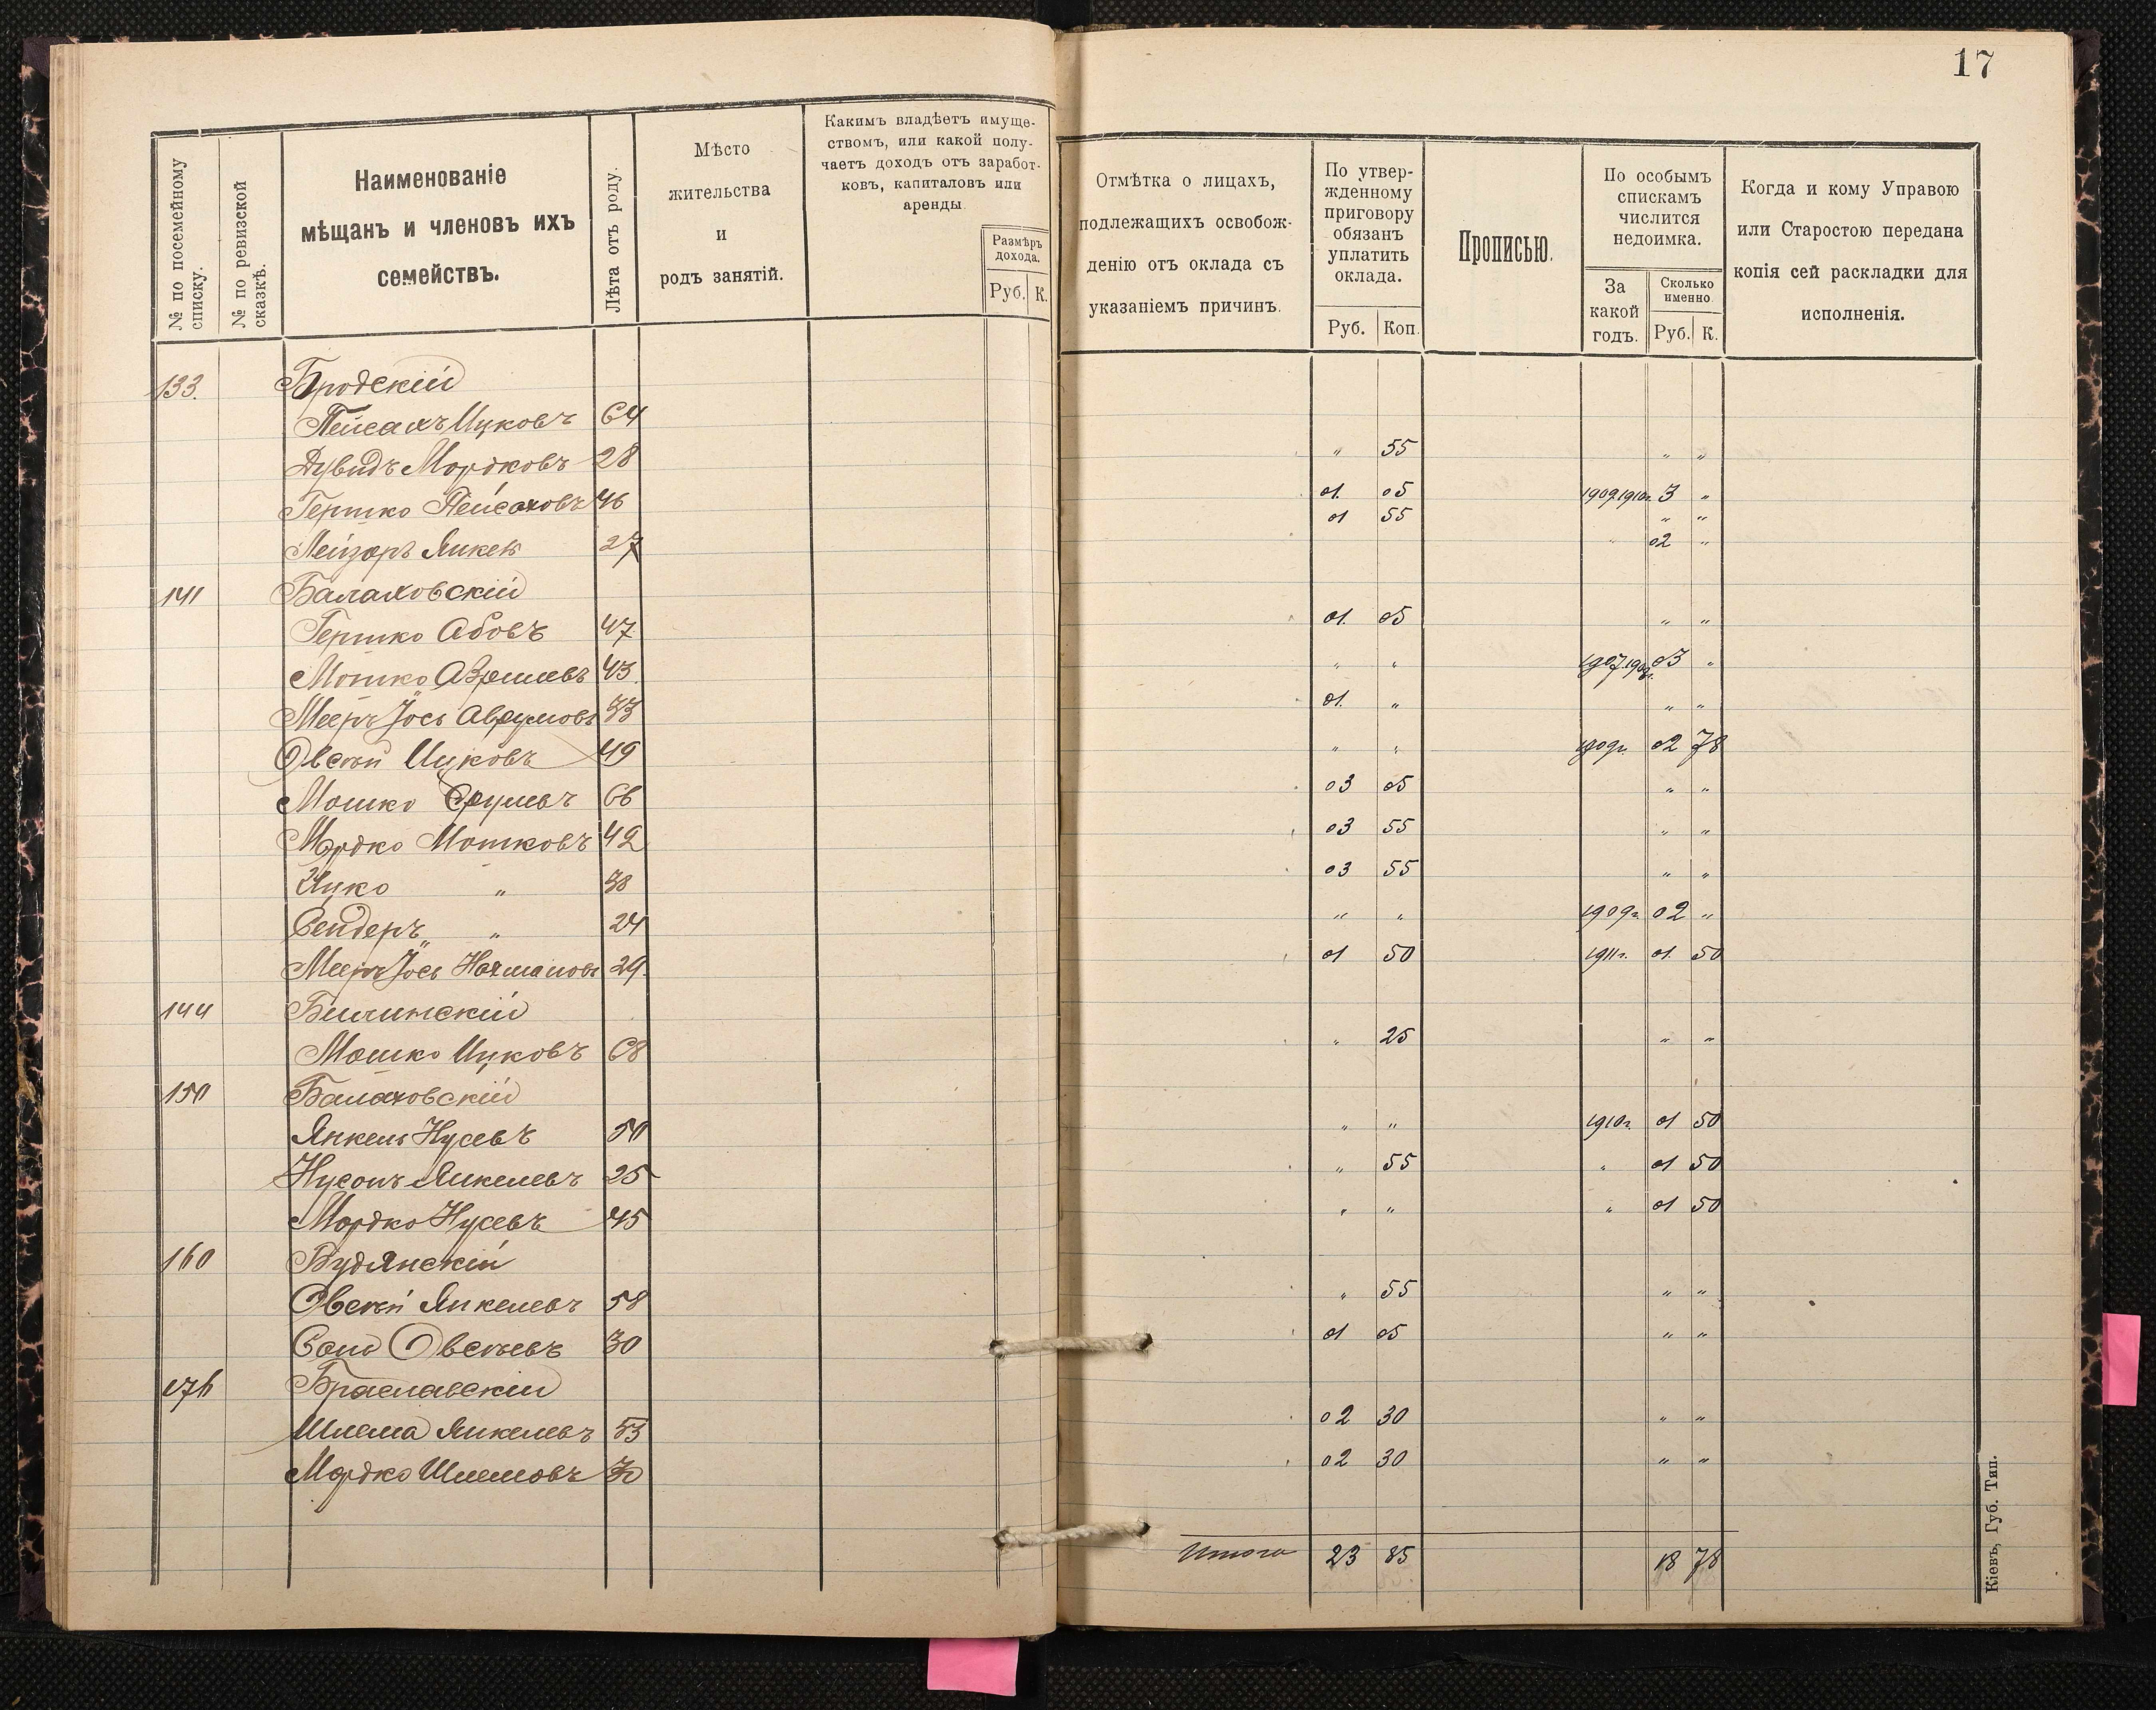 17
№ по посемейному списку.
№ по ревизской сказкѣ.
Наименованіе
мѣщанъ и членовъ ихъ
семействъ.
Лѣта отъ роду.
Мѣсто
жительства
и
родъ занятій.
Какимъ владѣетъ имуще-
ствомъ, или какой полу-
чаетъ доходъ отъ заработ-
ковъ, капиталовъ или
аренды
Размѣръ
дохода.
Руб. К.
Отмѣтка о лицахъ,
подлежащихъ освобож-
денію отъ оклада съ
указаніемъ причинъ.
По утвер-
жденному
приговору
обязанъ
уплатить
оклада.
Руб. Коп.
Прописью.
По особымъ
спискамъ
числится
недоимка.
За
какой
годъ.
Сколько
именно.
Руб. К.
Когда и кому Управою
или Старостою передана
копія сей раскладки для
исполненія.
133. Бродскій
Пейсахъ Ицковъ 64
Дувидъ Мордковъ 28 " 55 " "
Гершко Пейсаховъ 46 01. 05 1909.1910г. 3 "
01 55 " "
Лейзоръ Янкел 27 " 02 "
141 Балаховскій
Гершко Абовъ 47 01. 05 " "
Мошко 43. " " 03 "
Мееръ Іось Аврумовъ 33 01. " " "
Овсей Ицковъ 49 " " 1909г. 02 78
Мошко Срулевъ 66 03 05 " "
Мордко Мошковъ 42 03 55 " "
Ицко " 38 03 55 " "
Сендеръ " 24 " " 1909г. 02 "
Мееръ Іось Нахмановъ 29. 01 50 1911г. 01. 50
144
Мошко Ицковъ 68 " 25 " "
150 Балаховскій
Янкель Нусевъ 50 " " 1910г. 01 50
Нусонъ Янкелевъ 25 " 55 " 01 50
Мордко Нусевъ 45 " " " 01 50
160 Будянскій
Овсей Янкелевъ 58 " 55 " "
Овсеевъ 30 01 05 " "
176 Браславскій
Шлема Янкелевъ 53 02 30 " "
Мордко Шлемовъ 30 02 30 " "
Итого 23 85 18 78
Кіевъ, Губ. Тип.